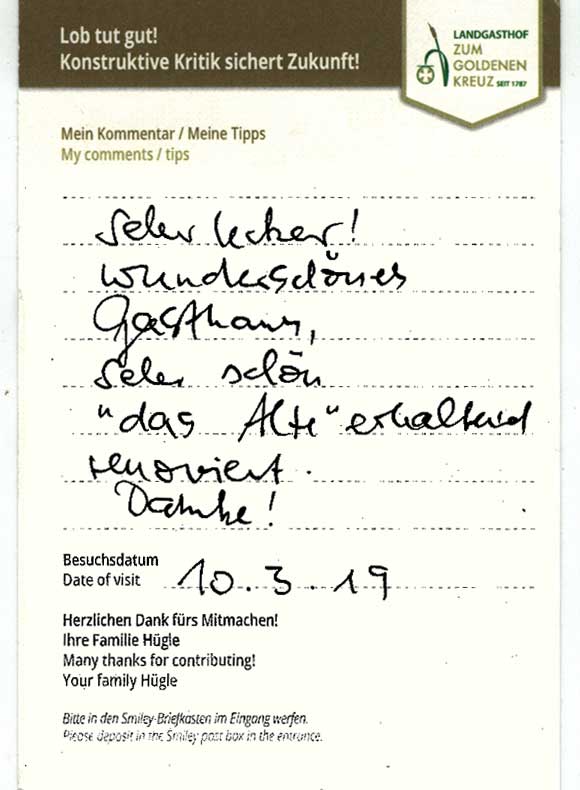 Lob tut gut!
Konstruktive Kritik sichert Zukunft!
LANDGASTHOF
ZUM
GOLDENEN
KREUZ SEIT 1787
Mein Kommentar / Meine Tipps
My comments / tips
Sehr lecker!
wunderschönes
Gasthaus,
sehr schön
"das Alte" erhaltend
renoviert.
Danke!
Besuchsdatum
Date of visit 10.3.19
Herzlichen Dank fürs Mitmachen!
Ihre Familie Hügle
Many thanks for contributing!
Your family Hügle
Bitte in den Smiley-Briefkasten im Eingang werfen.
Please deposit in the Smiley post box in the entrance.